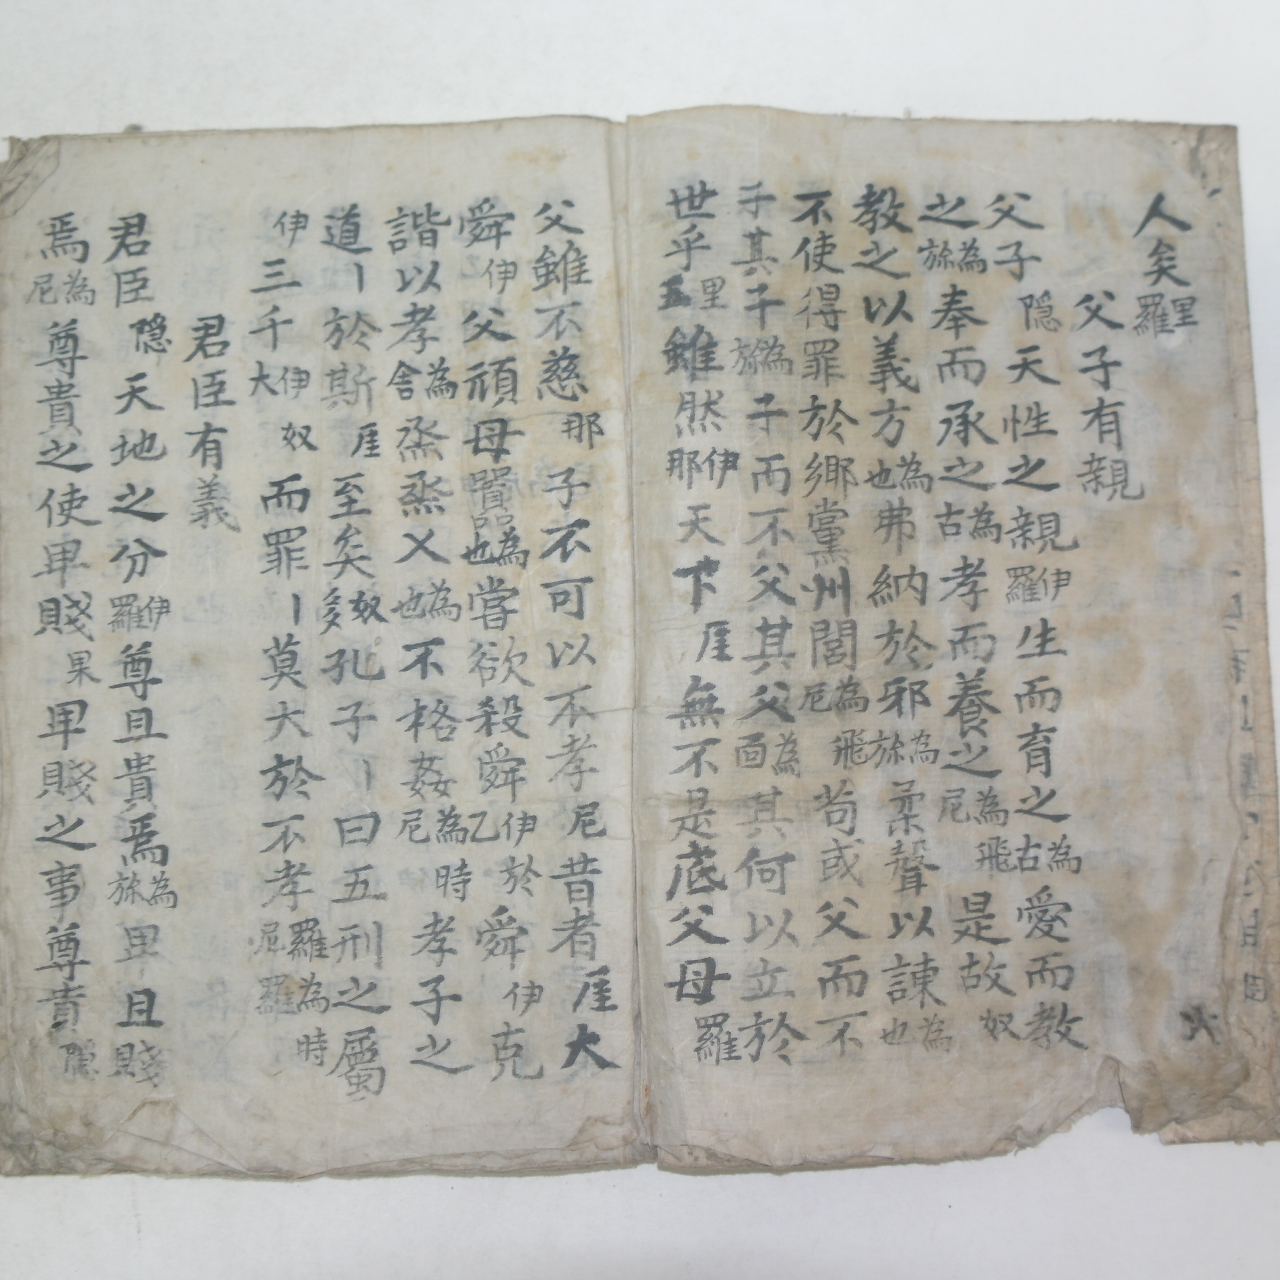 人矣里羅
父子有親
父子隱天性之親伊羅生而育之為古愛而教
之為旀奉而承之為古孝而養之為尼飛是故奴
教之以義方為也弗納於邪為旀柔聲以諫為也
不使得罪於鄉黨州閭為尼飛苟或父而不
子其子為旀子而不父其父為面其何以立於
世乎里五雖然伊那天下厓無不是底父母羅
父雖不慈那子不可以不孝尼昔者厓大
舜伊父頑母嚚為也嘗欲殺舜伊乙於舜伊克
諧以孝為舍烝烝乂為也不格姦為尼時孝子之
道丨於斯厓至矣奴多孔子丨曰五刑之屬
伊三千伊大奴而罪丨莫大於不孝羅尼為羅時
君臣有義
君臣隱天地之分伊羅尊且貴焉為旀卑且賤
焉為尼尊貴之使卑賤果卑賤之事尊貴隱